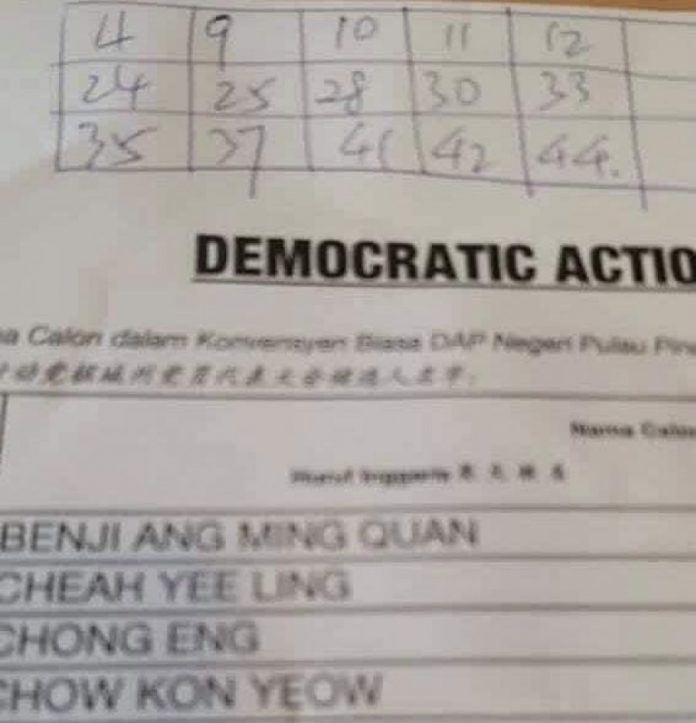 4 9 10 11 12
24 25 28 30 33
35 37 41 42 44.
DEMOCRATIC ACTIO
a Calon dalam Konvensyen Biasa DAP Negeri Pulau Pin
Nama Calon
Huruf Inggeris
BENJI ANG MING QUAN
CHEAH YEE LING
CHONG ENG
CHOW KON YEOW